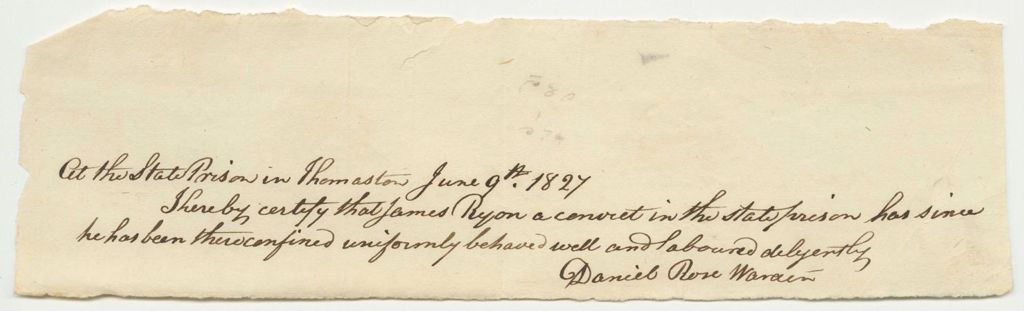 At the State Prison in Thomaston June 9th. 1827
I hereby certify that James Ryon a convict in the state prison has since
he has been there confined uniformly behaved well and laboured delygently
Daniel Rose Warden